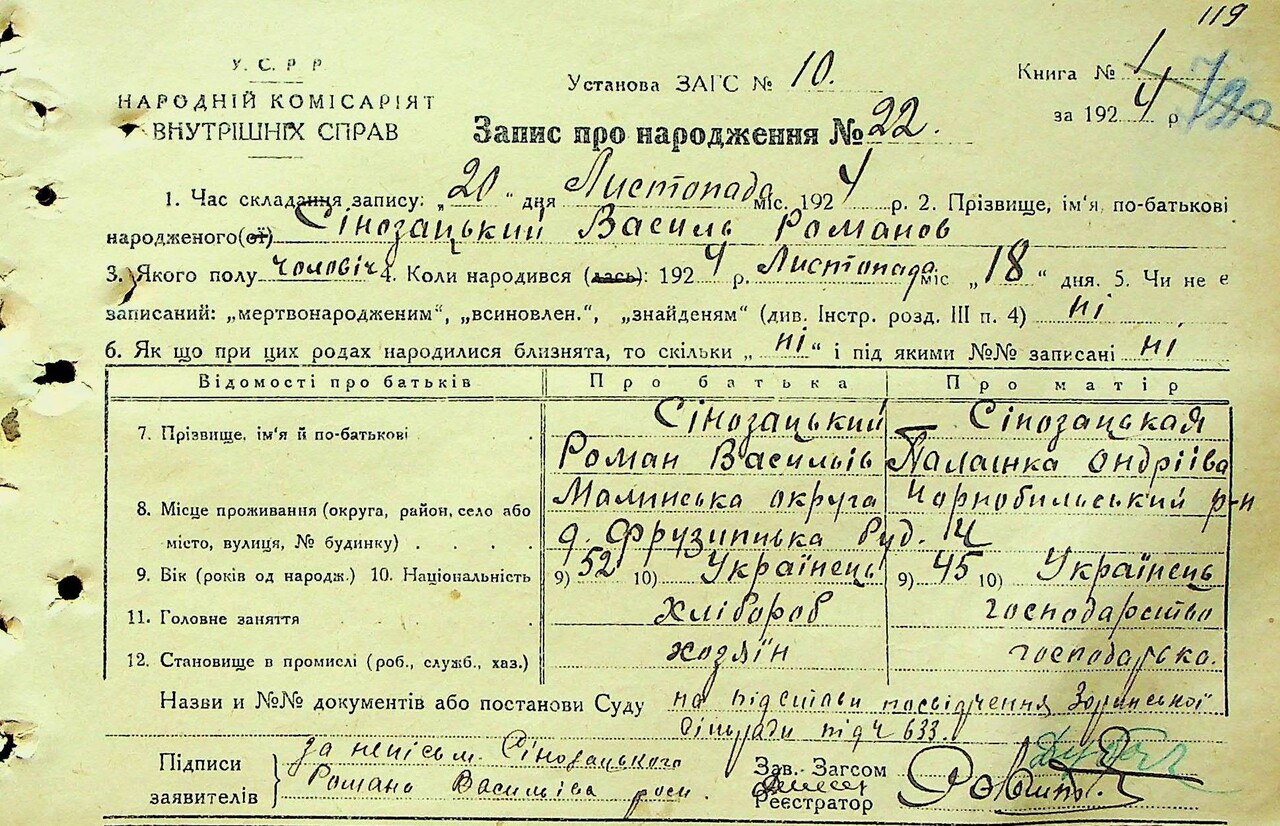 119
У. С. Р. Р.
НАРОДНІЙ КОМІСАРІЯТ
ВНУТРІШНІХ СПРАВ
Установа ЗАГС № 10.
Книга № 1
за 1924 р
Запис про народження № 22.
1. Час складання запису: „20“ дня Листопада міс. 1924 р. 2. Прізвище, ім'я, по-батькові
народженого(ої) Сінозацький Василь Романов
3. Якого полу чоловіч 4. Коли народився (лась): 1924 р. Листопада міс „18“ дня. 5. Чи не є
записаний: „мертвонародженим“, „всиновлен.“, „знайденям“ (див. Інстр. розд. III п. 4) ні
6. Як що при цих родах народилися близнята, то скільки „ні“ і під якими №№ записані ні
Відомості про батьків Про батька Про матір
7. Прізвище, ім'я й по-батькові Сінозацький Сінозацькая
Роман Васильів Палашка Ондріїва
8. Місце проживання (округа, район, село або Малинська округа Чорнобильський р-н
місто, вулиця, № будинку) д. Руд.
9. Вік (років од народж.) 10. Національність 9) 52 10) Українець 9) 45 10) Українець
11. Головне заняття Хлібороб господарство
12. Становище в промислі (роб., служб., хаз.) хозяїн господарка.
Назви и №№ документів або постанови Суду на підстави посвідчення Зоринської
сільради під ч 633.
Підписи заявителів за неписьм. Сінозацького
Романа Васильіва росп.
Зав. Загсом
Реєстратор